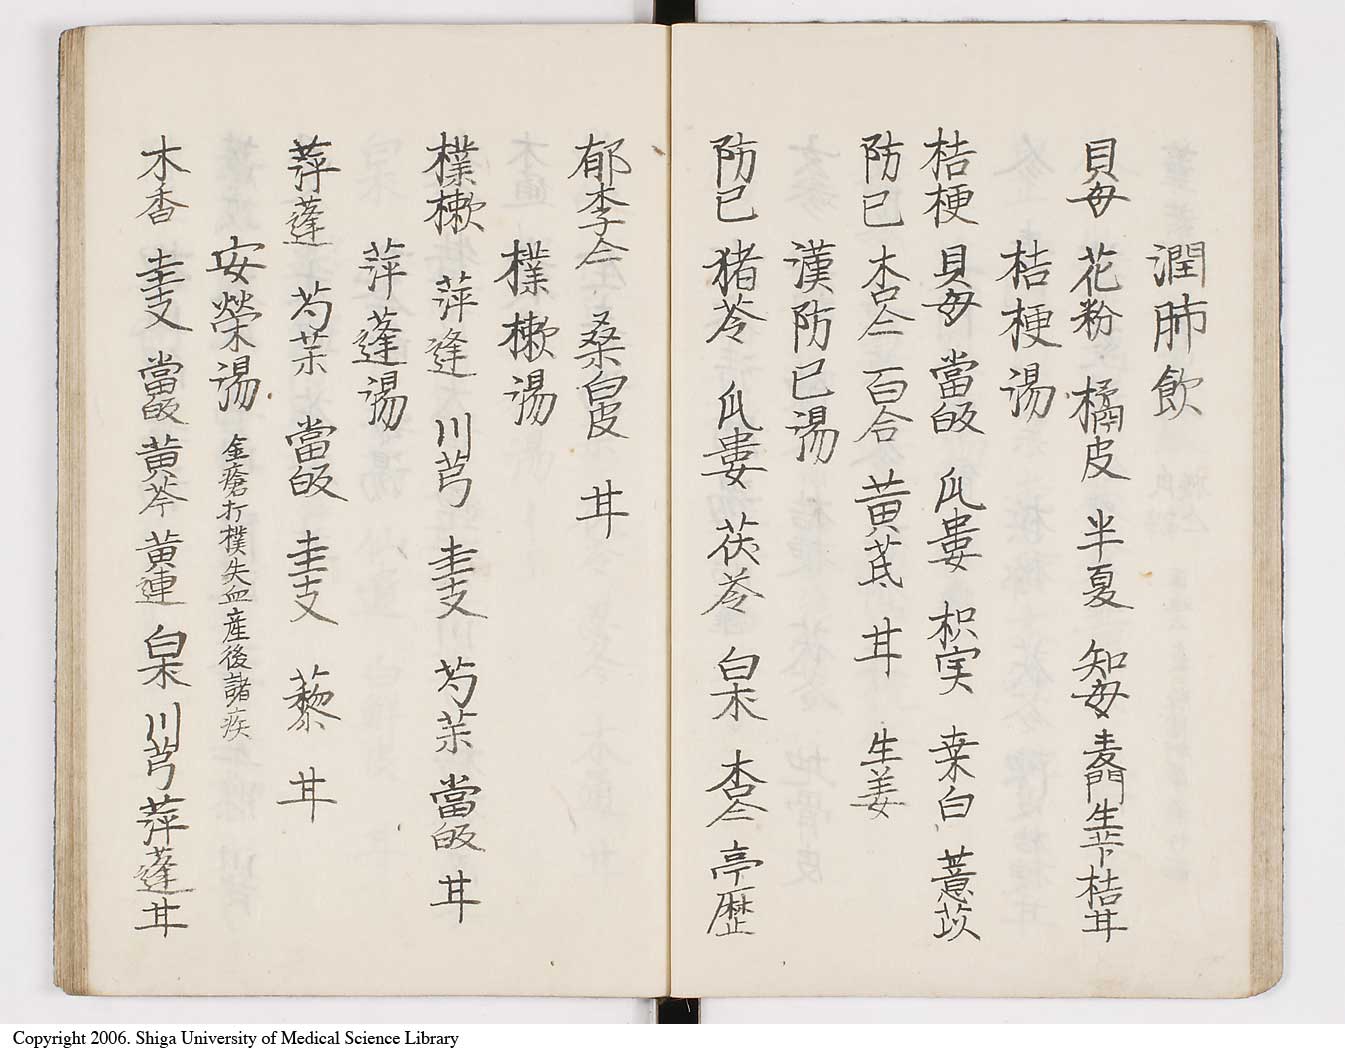 潤肺飲
貝母 花粉 橘皮 半夏 知母 麦門 生苄 桔 甘
桔梗湯
桔梗 貝母 當皈 瓜婁 枳実 桒白 薏苡
防已 杏仝 百合 黄芪 甘 生姜
漢防已湯
防已 猪苓 瓜婁 茯苓 白朮 杏仝 亭歴
郁李仝 桑白皮 甘
樸樕湯
樸樕 萍逢 川芎 圭支 芍薬 當皈 甘
萍蓬湯
萍蓬 芍薬 當皈 圭支 藜 甘
安榮湯 金瘡打樸失血産後諸疾
木香 圭支 當皈 黄芩 黄連 白朮 川芎 萍蓬 甘
Copyright 2006. Shiga University of Medical Science Library